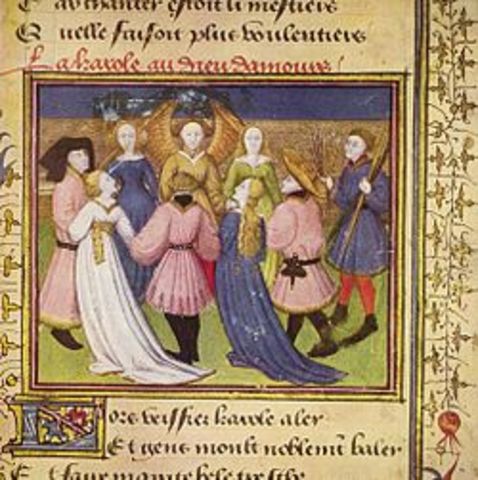 au chanter estoit li mestiers
Quelle faisoit plus voulentiers
La karole au dieu damours
Lors veissiez karole aler
Et gens moult noblemt baler